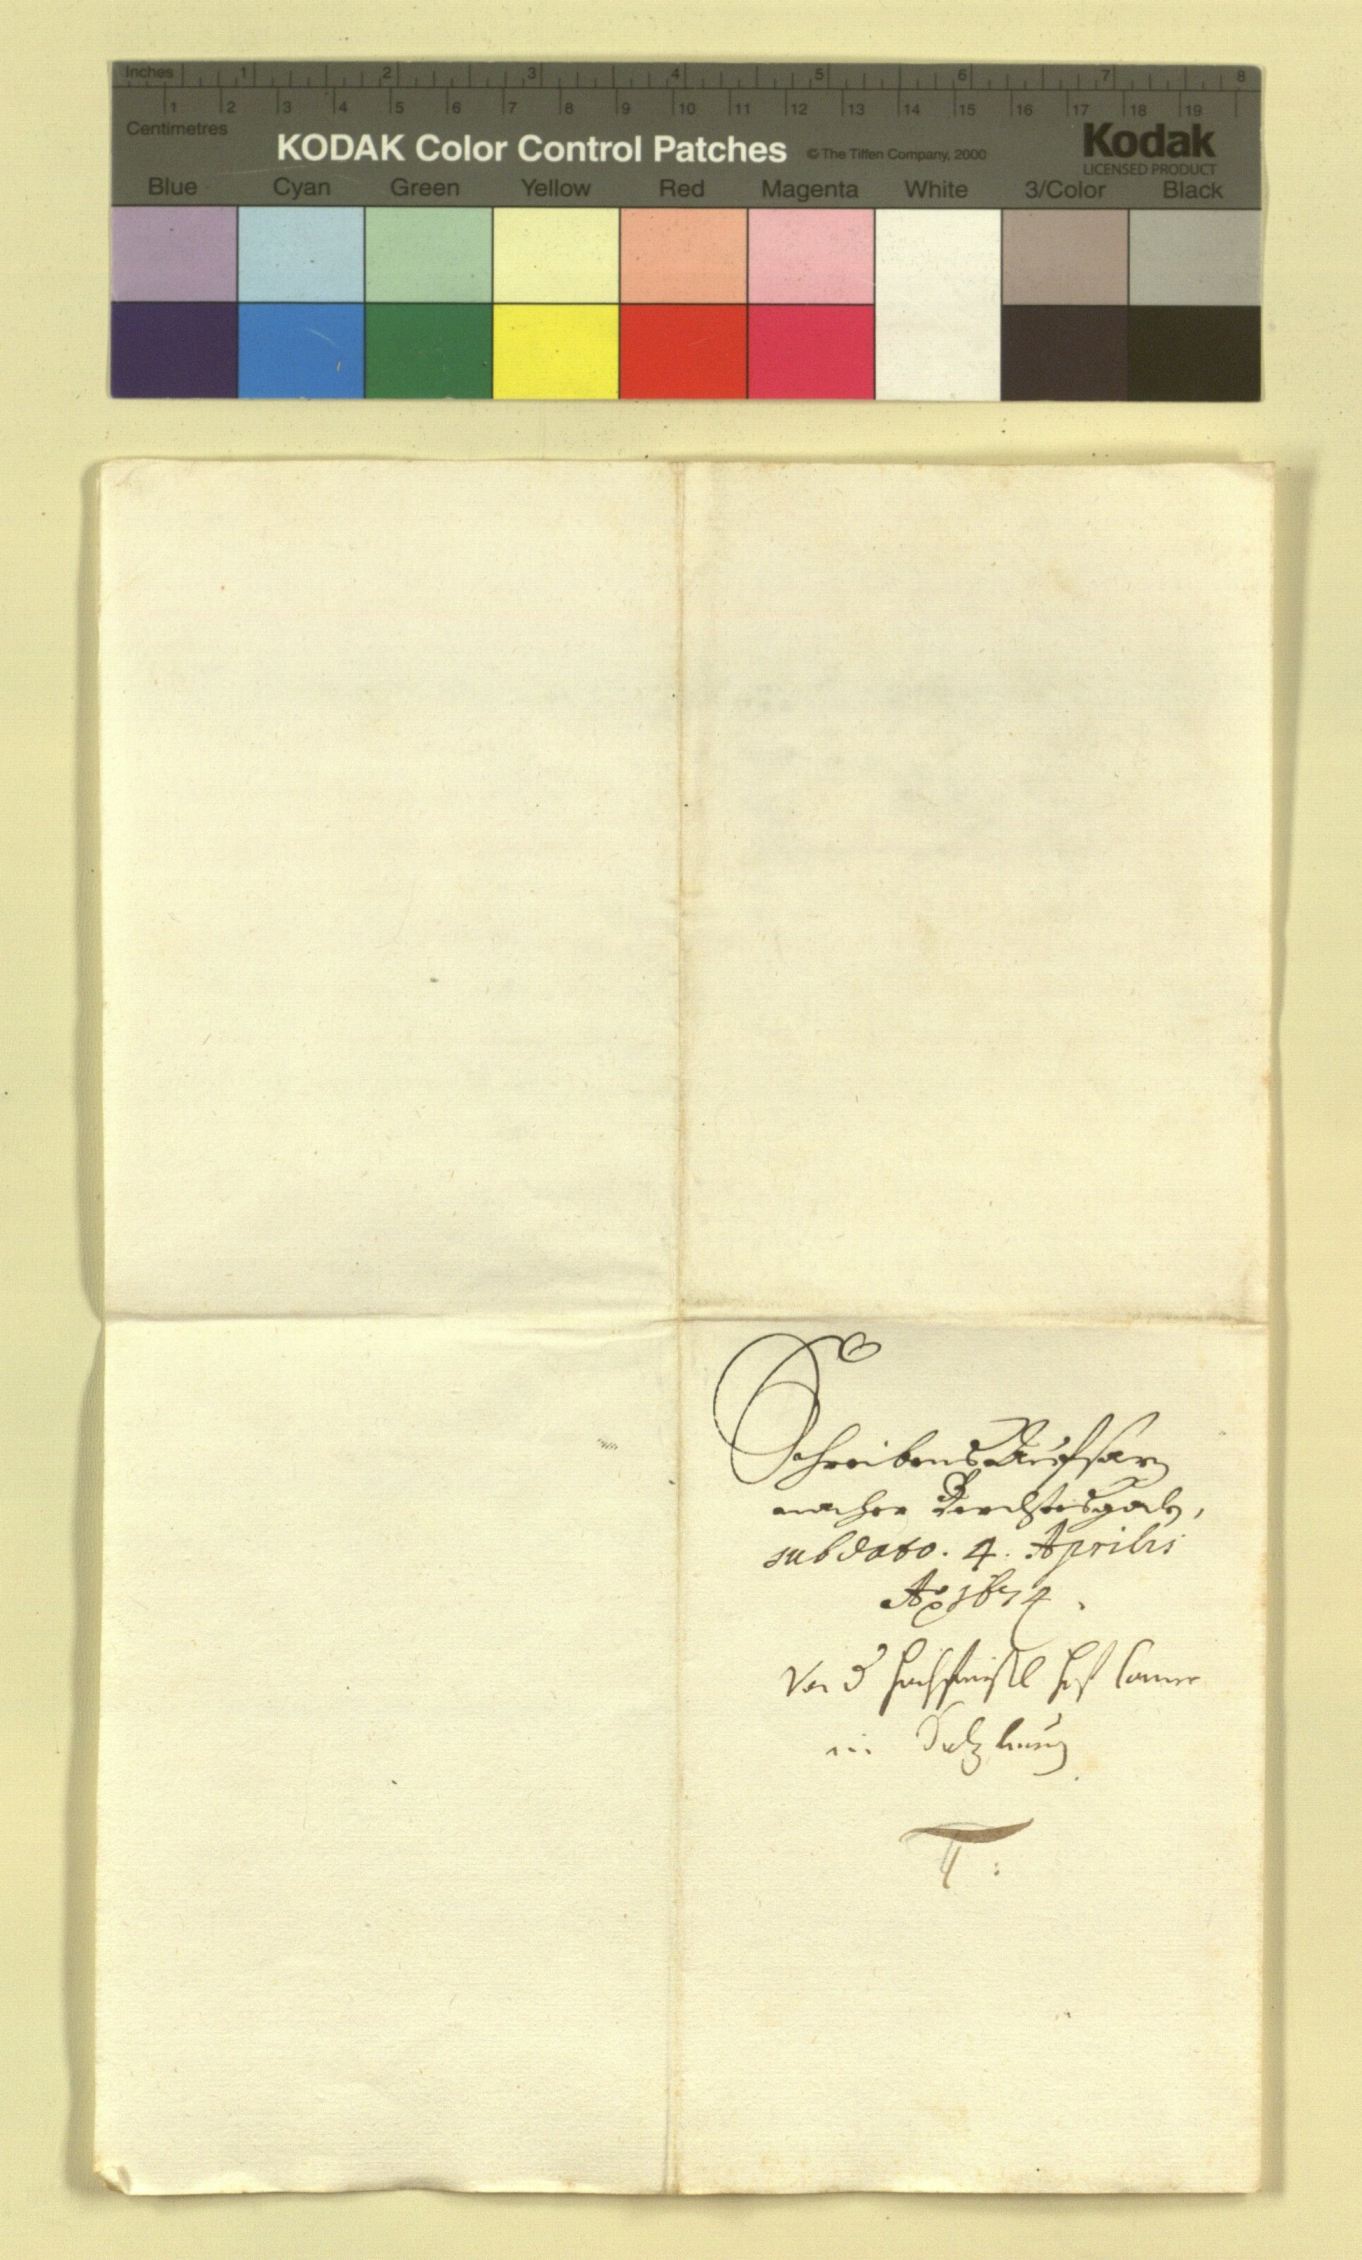 Inches 1 2 3 4 5 6 7 8
1 2 3 4 5 6 7 8 9 10 11 12 13 14 15 16 17 18 19
Centimetres
KODAK Color Control Patches © The Tiffen Company, 2000 Kodak
LICENSED PRODUCT
Blue Cyan Green Yellow Red Magenta White 3/Color Black
Schreibens Aufsaz
nacher Berchtesgadn,
sub dato. 4. Aprilis
Ao 1674.
Von d hochfürstl hof Camer
in Salzburg